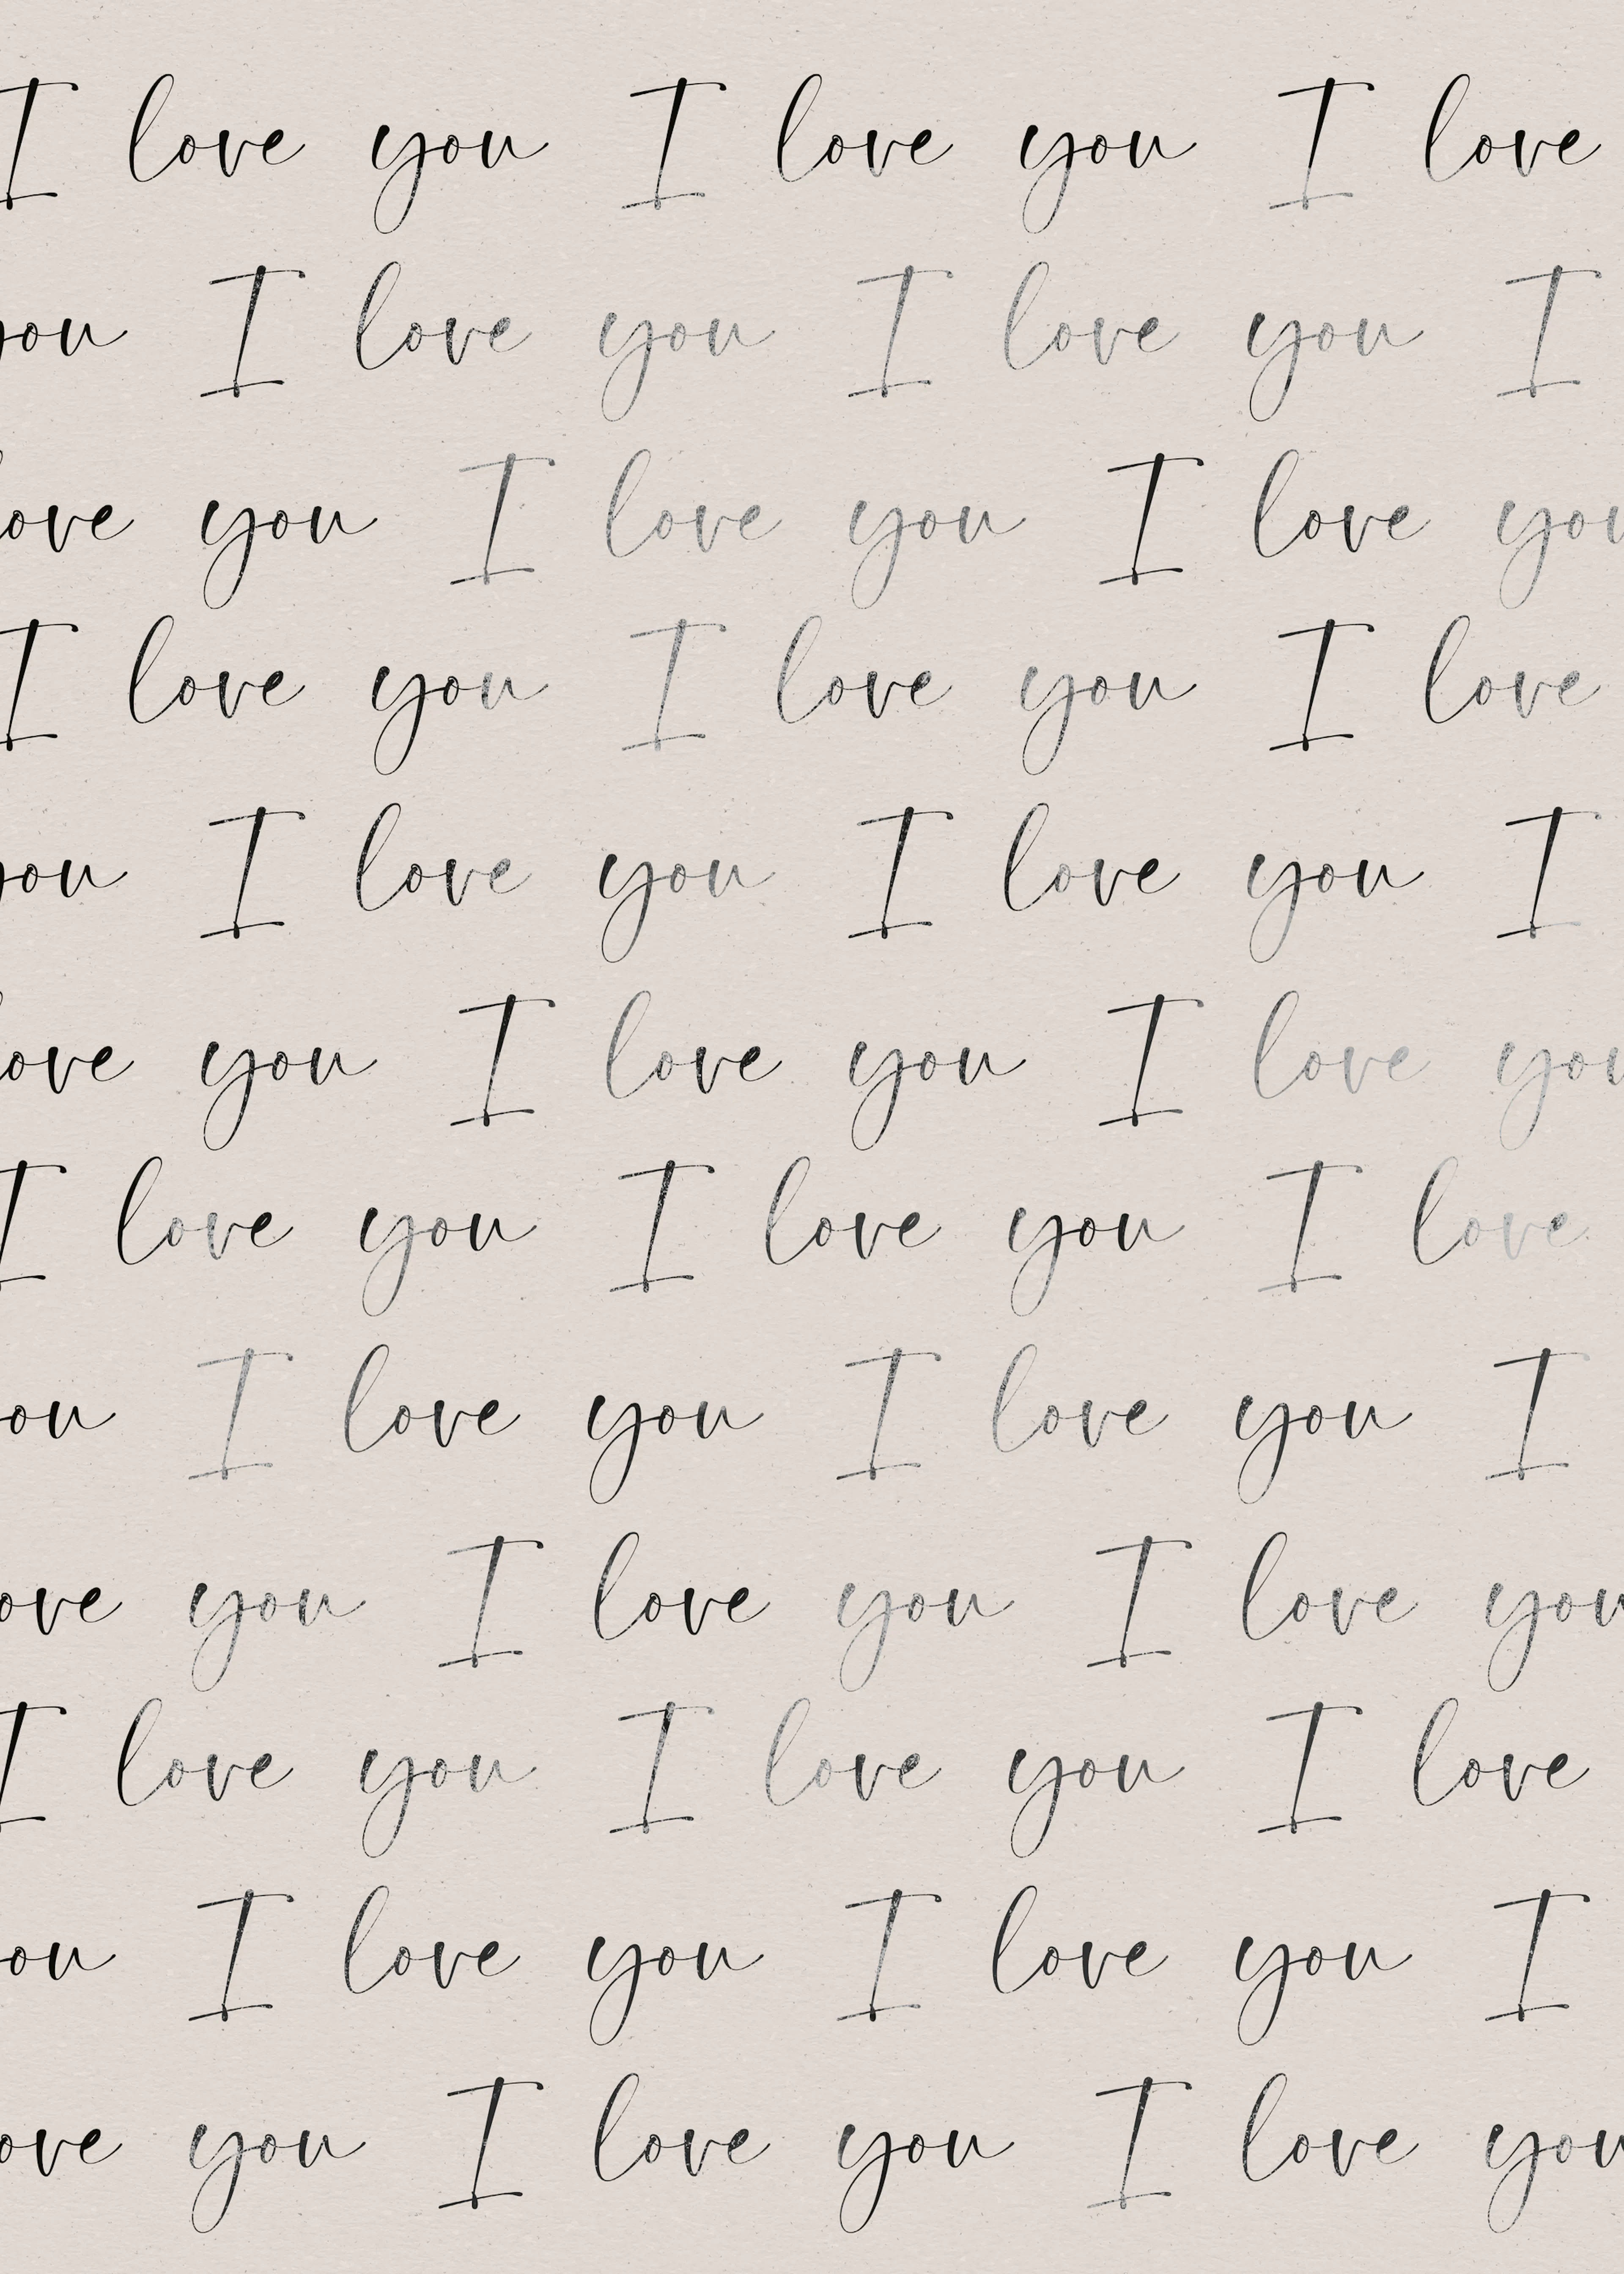 I love you I love you I love
you I love you I love you I
love you I love you I love you
I love you I love you I love
you I love you I love you I
love you I love you I love you
I love you I love you I love
ou I love you I love you I
ove you I love you I love you
I love you I love you I love
ou I love you I love you I
ove you I love you I love you